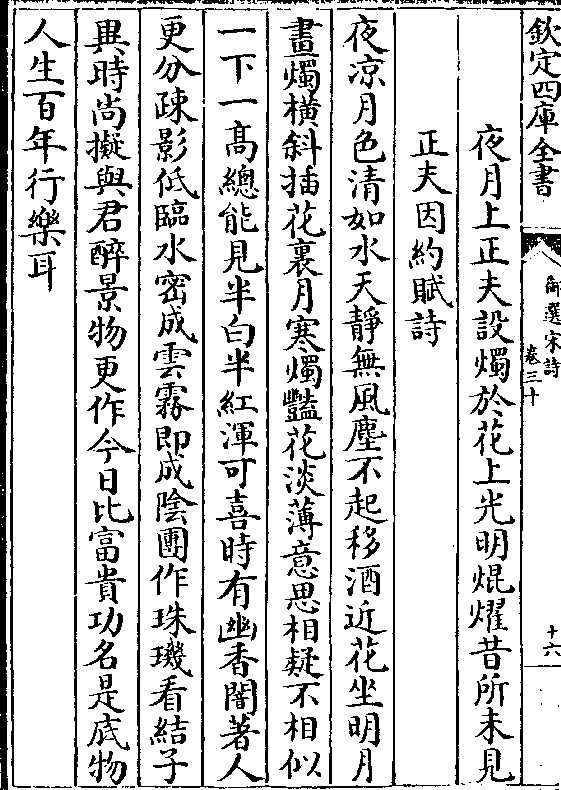 欽定四庫全書
御選宋詩
卷三十
十六
夜月上正夫設燭於花上光明焜燿昔所未見
正夫因約賦詩
夜凉月色清如水天靜無風塵不起移酒近花坐明月
畫燭橫斜插花裏月寒燭豔花淡薄意思相疑不相似
一下一高總能見半白半紅渾可喜時有幽香闇著人
更分疎影低臨水密成雲霧即成陰團作珠璣看結子
異時尚擬與君醉景物更作今日比富貴功名是底物
人生百年行樂耳